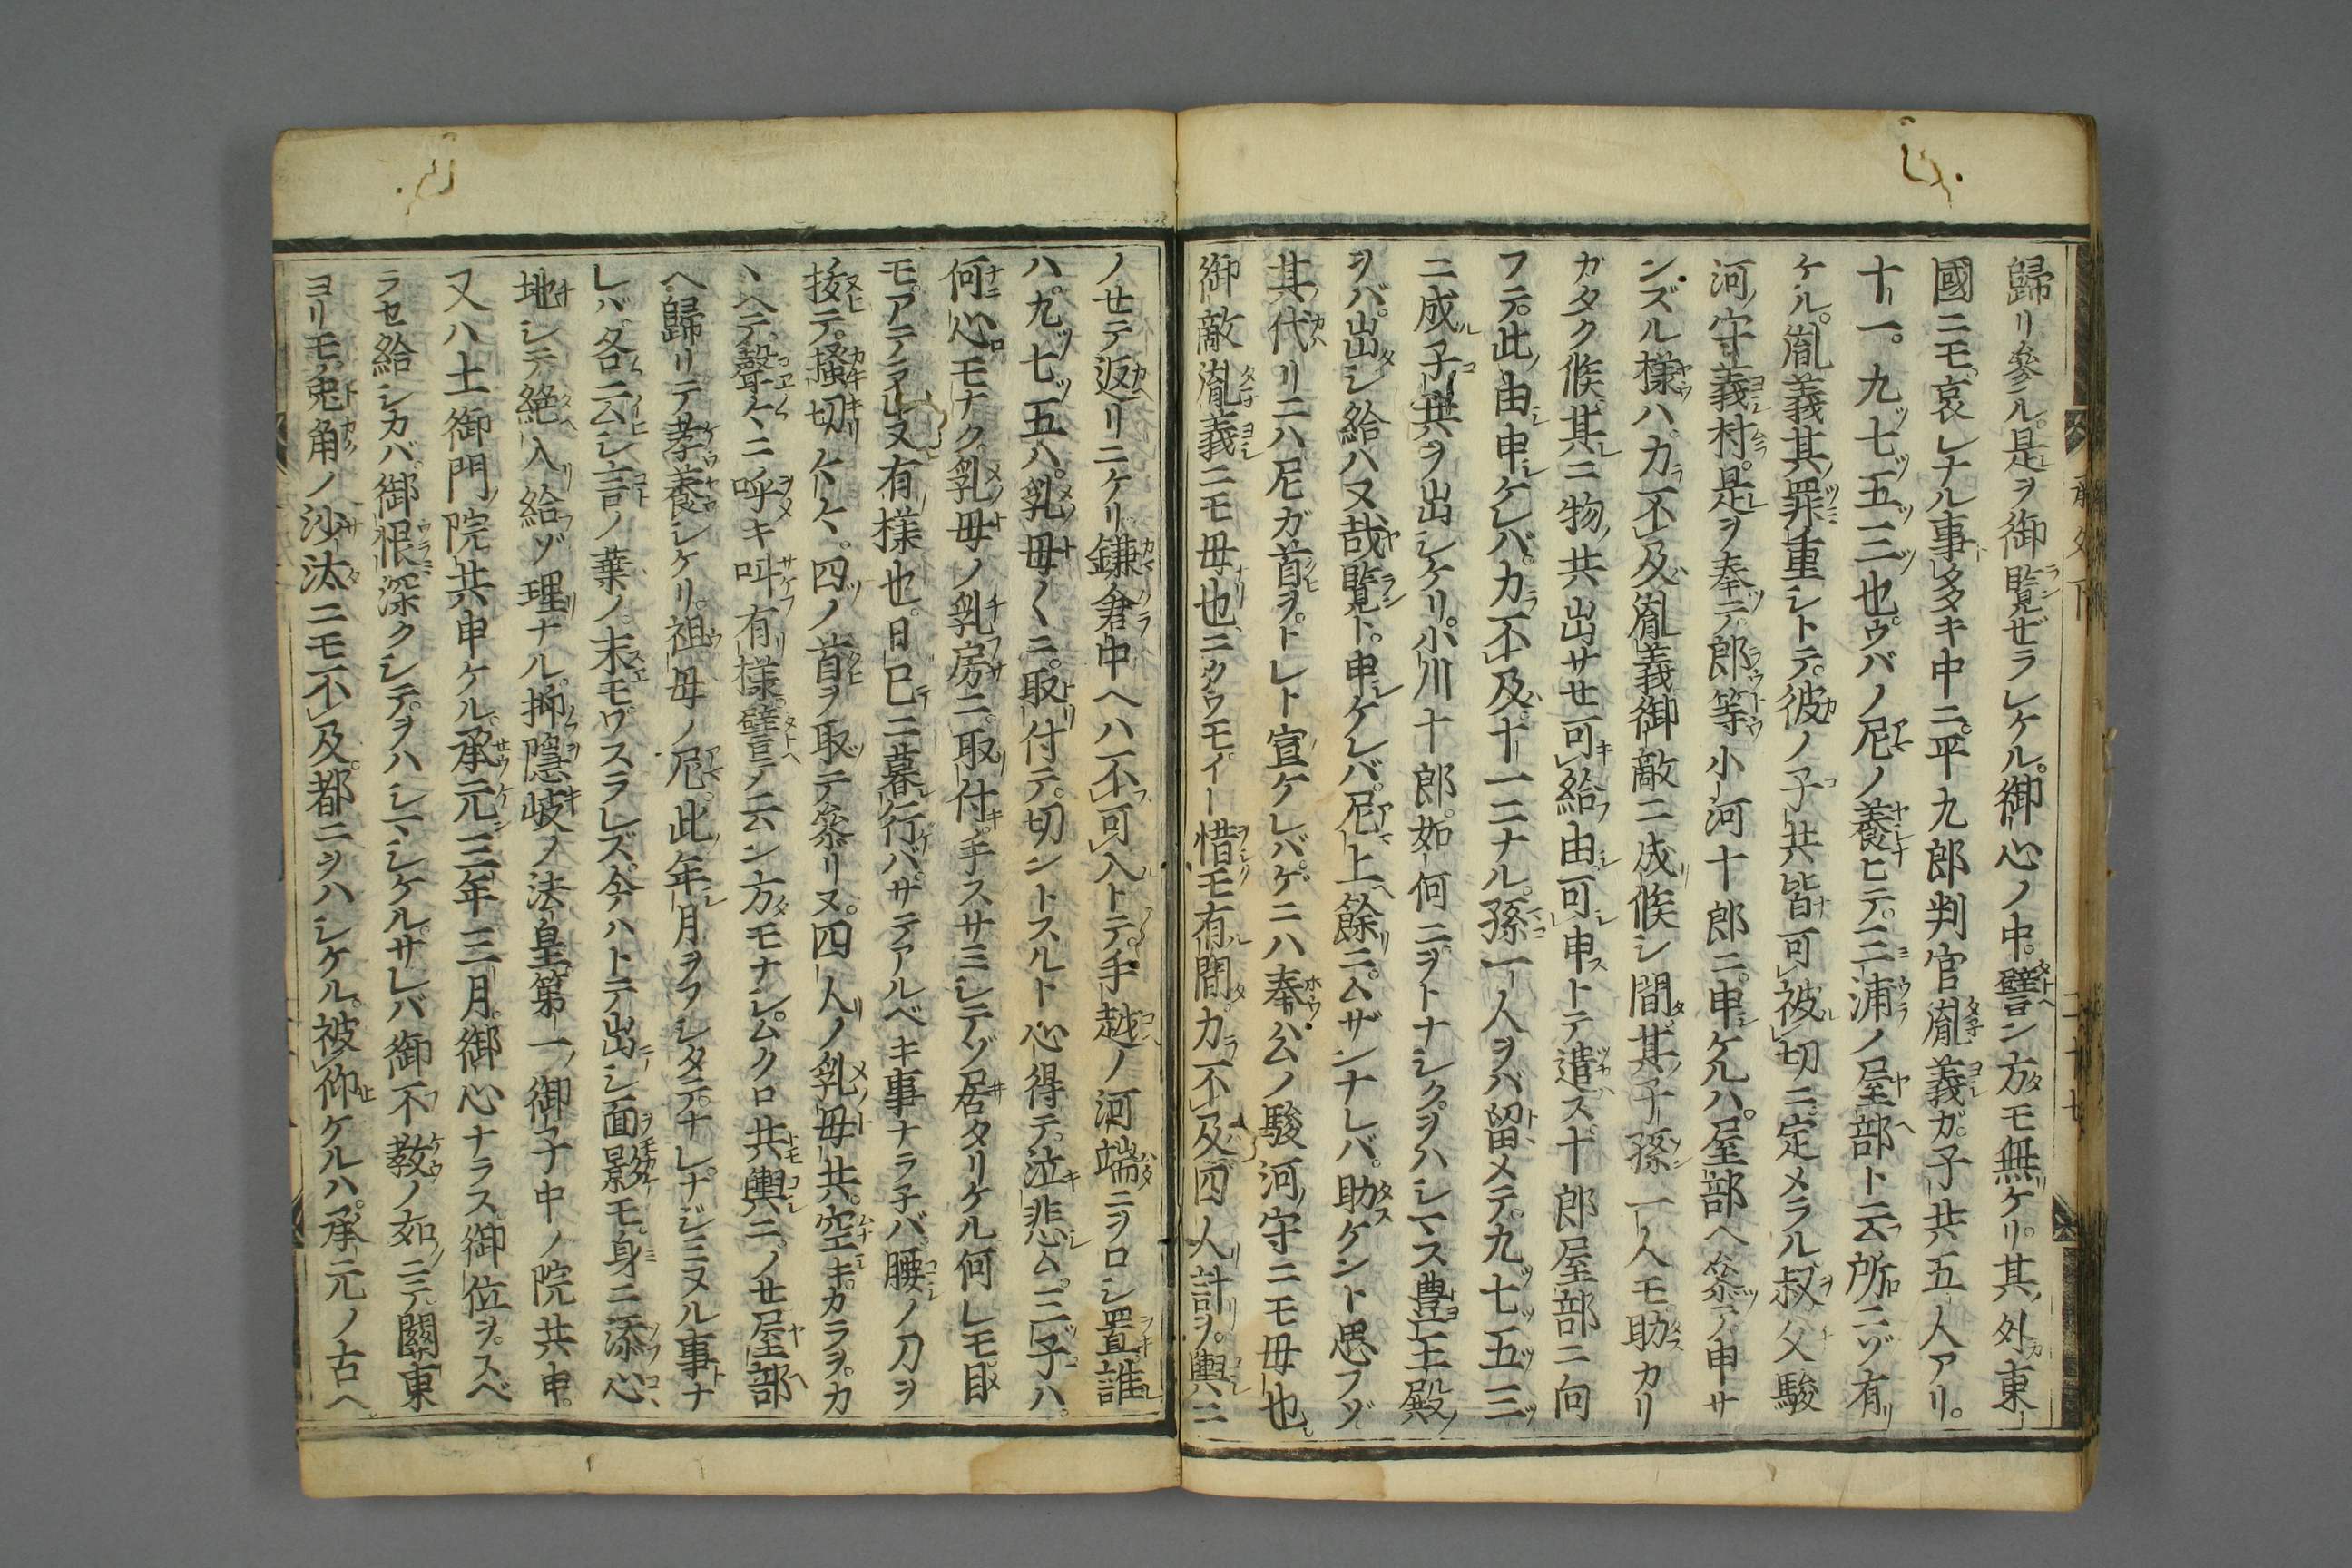 歸リ參ル。是ヲ御覽ゼラレケル。御心ノ中。譬ン方モ無ケリ。其外東
國ニモ。哀レナル事多キ中ニ。平九郎判官胤義ガ。子共五人アリ。
十一。九七五三也。ウバノ尼ノ養ヒテ。三浦ノ屋部ト云所ニゾ有
ケル。胤義其罪重シトテ。彼ノ子共皆可被切ニ。定メラル。叔父駿
河守義村。是ヲ奉テ。郎等小河十郎ニ。申ケルハ。屋部ヘ參テ。申サ
ンズル樣ハ。力不及胤義御敵ニ成候シ間。其子孫一人モ助カリ
ガタク候。其ニ物共出サセ可給由可申トテ遣ス。十郎屋部ニ向
フテ。此由申ケレバ。力不及。十一ニナル。孫一人ヲバ留メテ。九七五三
ニ成子共ヲ出シケリ。小川十郎。如何ニヲトナシクヲハシマス豊王殿
ヲバ。出シ給ハヌ哉覽ト。申ケレバ。尼上餘ニ。ムザンナレバ。助ケント思フゾ
其代リニハ尼ガ首ヲ。トレト宣ケレバ。ゲニハ奉公ノ駿河守ニモ母也
御敵胤義ニモ母也。ニクウモイト惜モ有間。力不及。四人計ヲ。輿ニ
ノセテ返リニケリ。鎌倉中ヘハ不可入トテ。手越ノ河端ニヲロシ置誰
ハ。九七五ハ。乳母〱ニ。取付テ。切ントスルト心得テ。泣悲ム。三子ハ。
何心モナク。乳母ノ乳房ニ。取付。手スサミシテゾ居タリケル何レモ。目
モ。アテラレヌ有樣也。日已ニ暮行バ。サテアルベキ事ナラ子バ。腰ノ刀ヲ
拔テ。搔切ケトケヽ。四ノ首ヲ取テ參リヌ。四人ノ乳母共。空キ。カラヲ。カ
ヽヘテ。聲々ニ呼キ叫有樣。譬テノ云ン方モナシ。ムクロ共輿ニノセ屋部
ヘ歸リテ孝養シケリ。祖母ノ尼。此年月ヲフシタテナレ。ナジミヌル事ナ
レバ。各云シ言ノ葉ノ。末モワスラレズ。今ハトテ出シ面影モ。身ニ添心
地シテ絶入給ゾ理ナル。抑隱岐ノ法皇第一ノ御子中ノ院共申。
又ハ土御門院共申ケル。承元三年三月。御心ナラス。御位ヲ。スベ
ラセ給シカバ。御恨深クシテ。ヲハシマシケル。サレバ御不教ノ如ニテ。關東
ヨリモ。兎角ノ沙汰ニモ不及。都ニヲハシケル。被仰ケルハ。承元ノ古ヘ